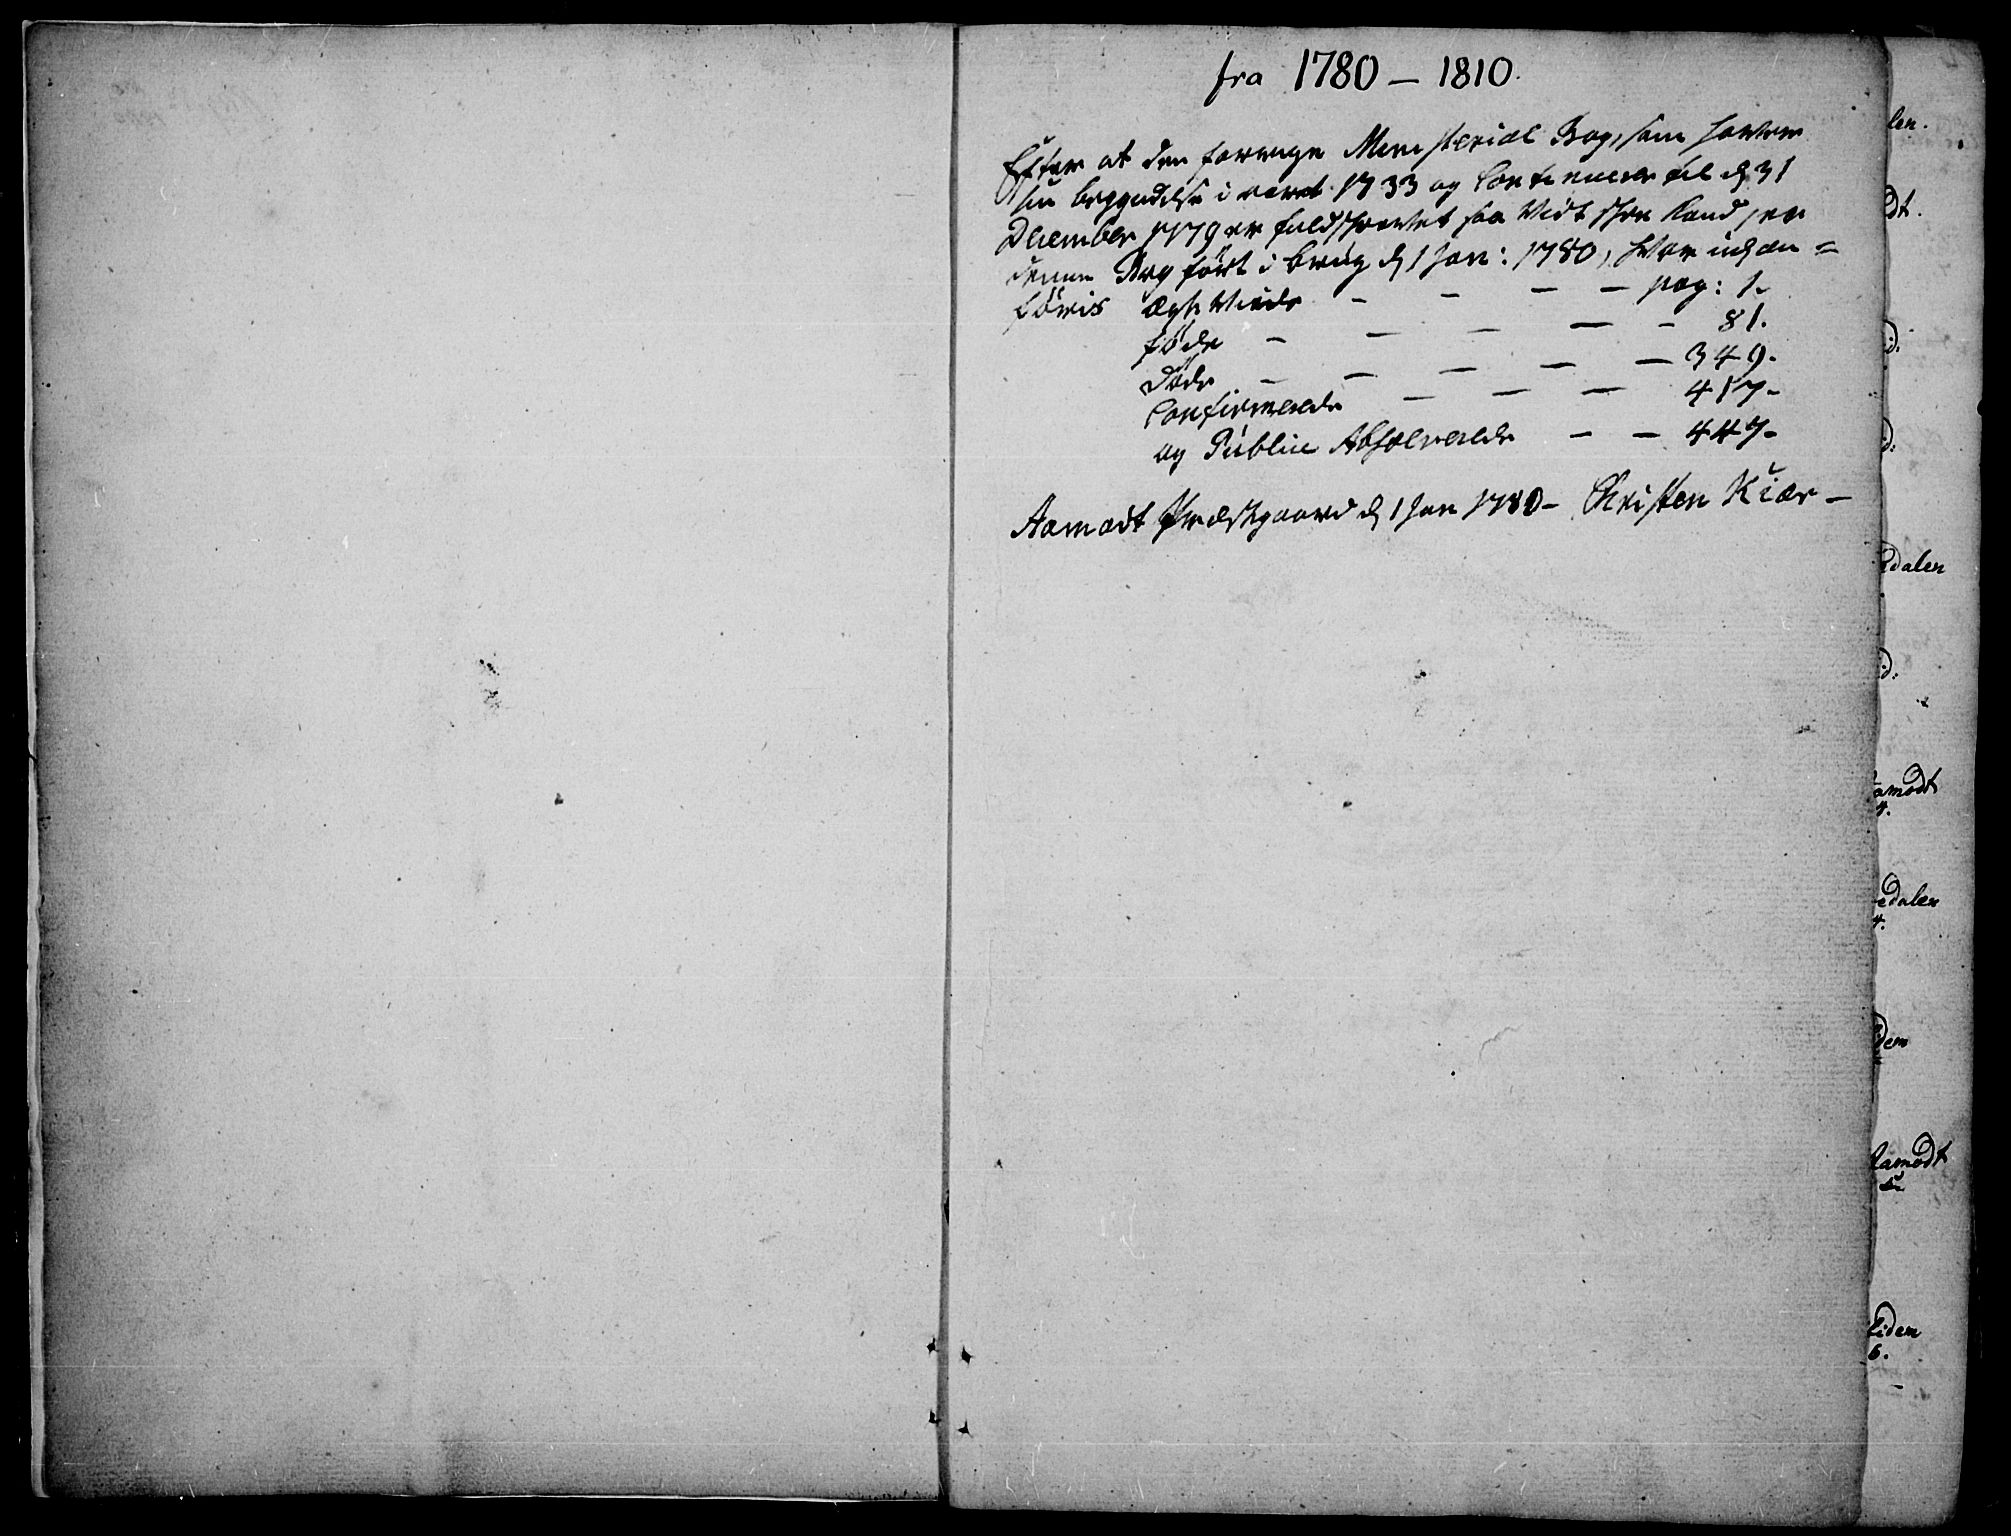 fra 1780 – 1810.
Efter at den forrige Menisterial Bog, som haver
sin begyndelse i aaret 1733 og Continuerer til d 31
December 1779 er fuldskrevet saa Vidt skee kand, er
denne Bog ført i brug d 1 Jan: 1780, hvor udj an=
føris ægte Viede – – – – pag: 1.
føde – – – – – 81.
døde – – – – – 349.
Confirmerede – – – 417.
og Public Absolverede – – 447.
Aamodt Præstgaard d 1 Jan 1780 – Christen Kiær –
len.
dt.
id:
id:
edalen
id:
aamodt
4.
edalen
4.
idem
Aamodt
Eidem
6.